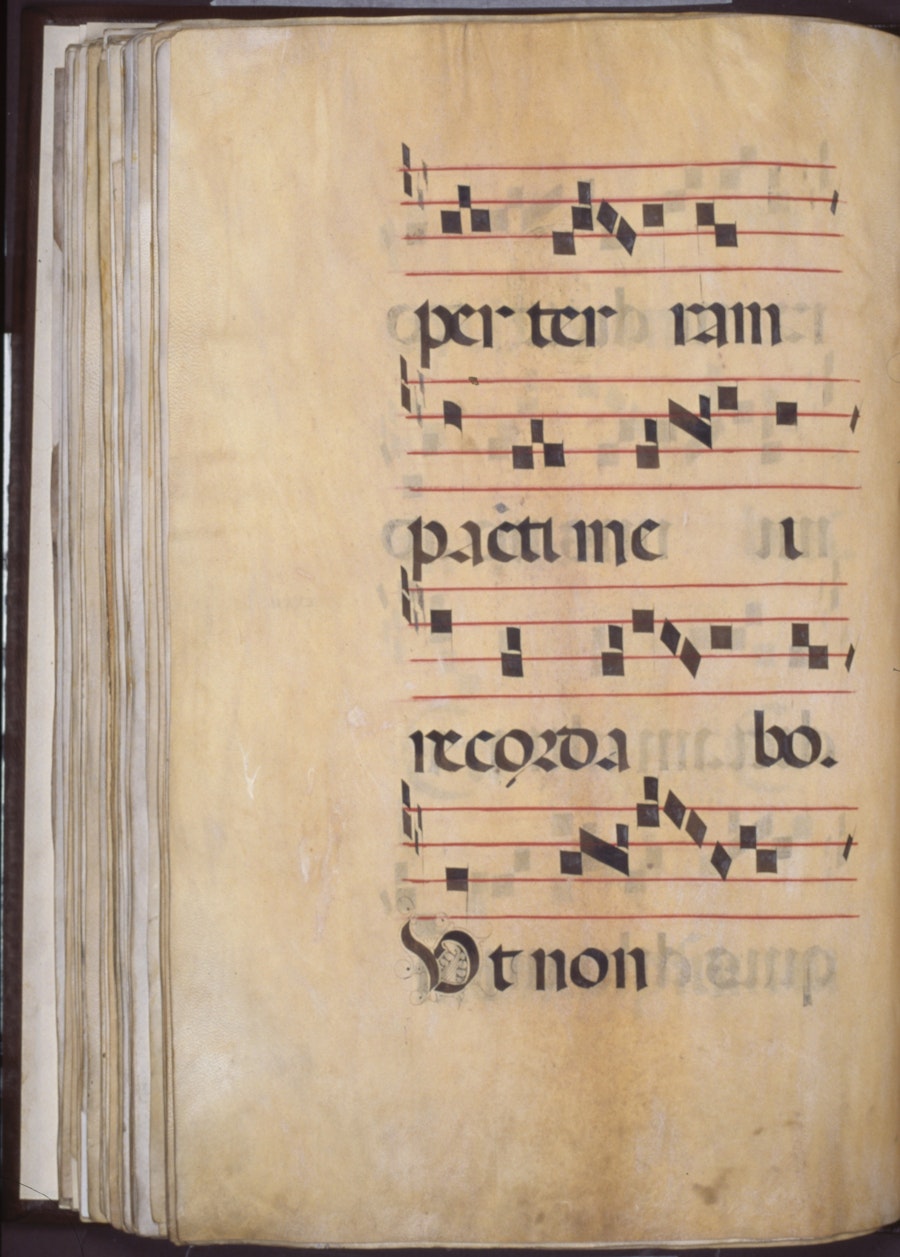 per ter ram
pacti me i
recorda bo.
Ut non